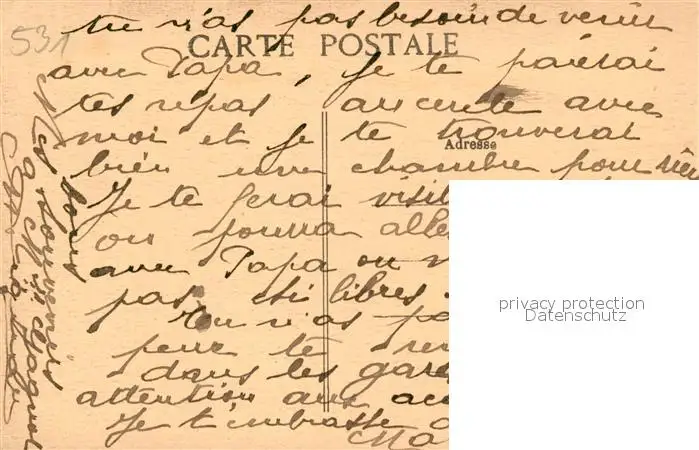 531
tu n'as pas besoin de venir
CARTE POSTALE
avec Papa, je te paierai
tes repas au cercle avec
moi et je te trouverai
Adresse
bien une chambre pour rien
Je te ferai visit
ou pourra alle
avec Papa ou
pas libres
Tu n'as pa
peur te
dans les gare
attention aux
Je t'embrasse
Ma
bons
souvenirs
privacy protection
Datenschutz